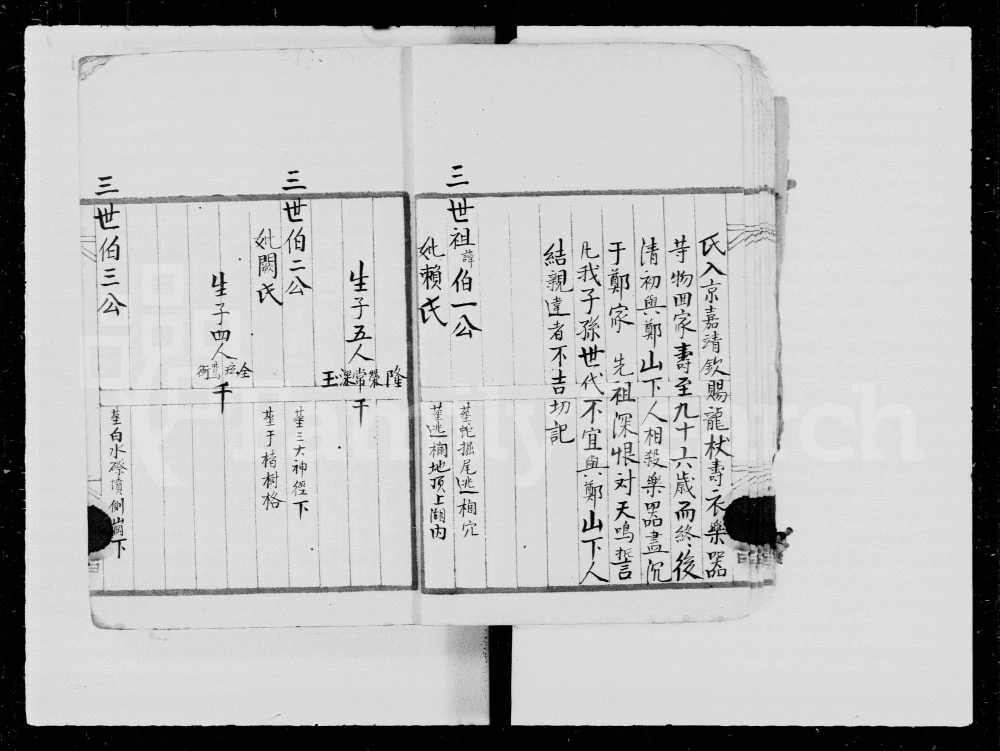 氏入京嘉清欽賜龍杖壽衣樂器
等物回家壽至九十六歲而終後
清初與鄭山下人相殺樂器盡沉
于鄭家 先祖深恨对天鳴誓
凡我子孫世代不宜與鄭山下人
結親違者不吉切記
三世祖諱伯一公
葬蛇掘尾逃相穴
妣賴氏
葬逃欄地頂上湖内
生子五人
隆 榮 常 深 玉
千
三世伯二公
葬三大神徑下
妣闕氏
葬于楮樹格
生子四人
千
三世伯三公
葬白水磜墳側崗下
FamilySearch